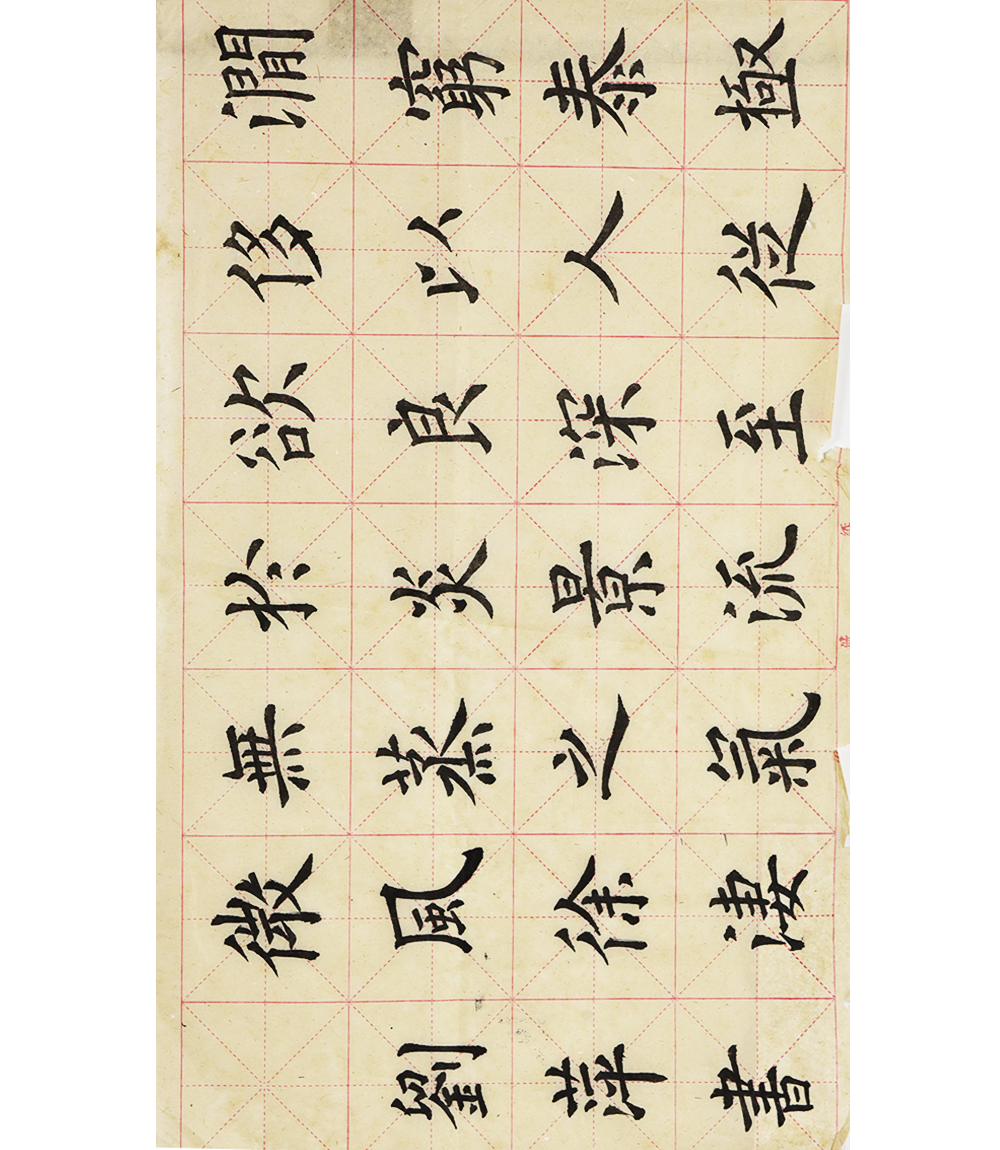 澗窮泰極
侈以人從
欲良深至
於炎景流
無蒸之氣
微風徐淒
劉萍書